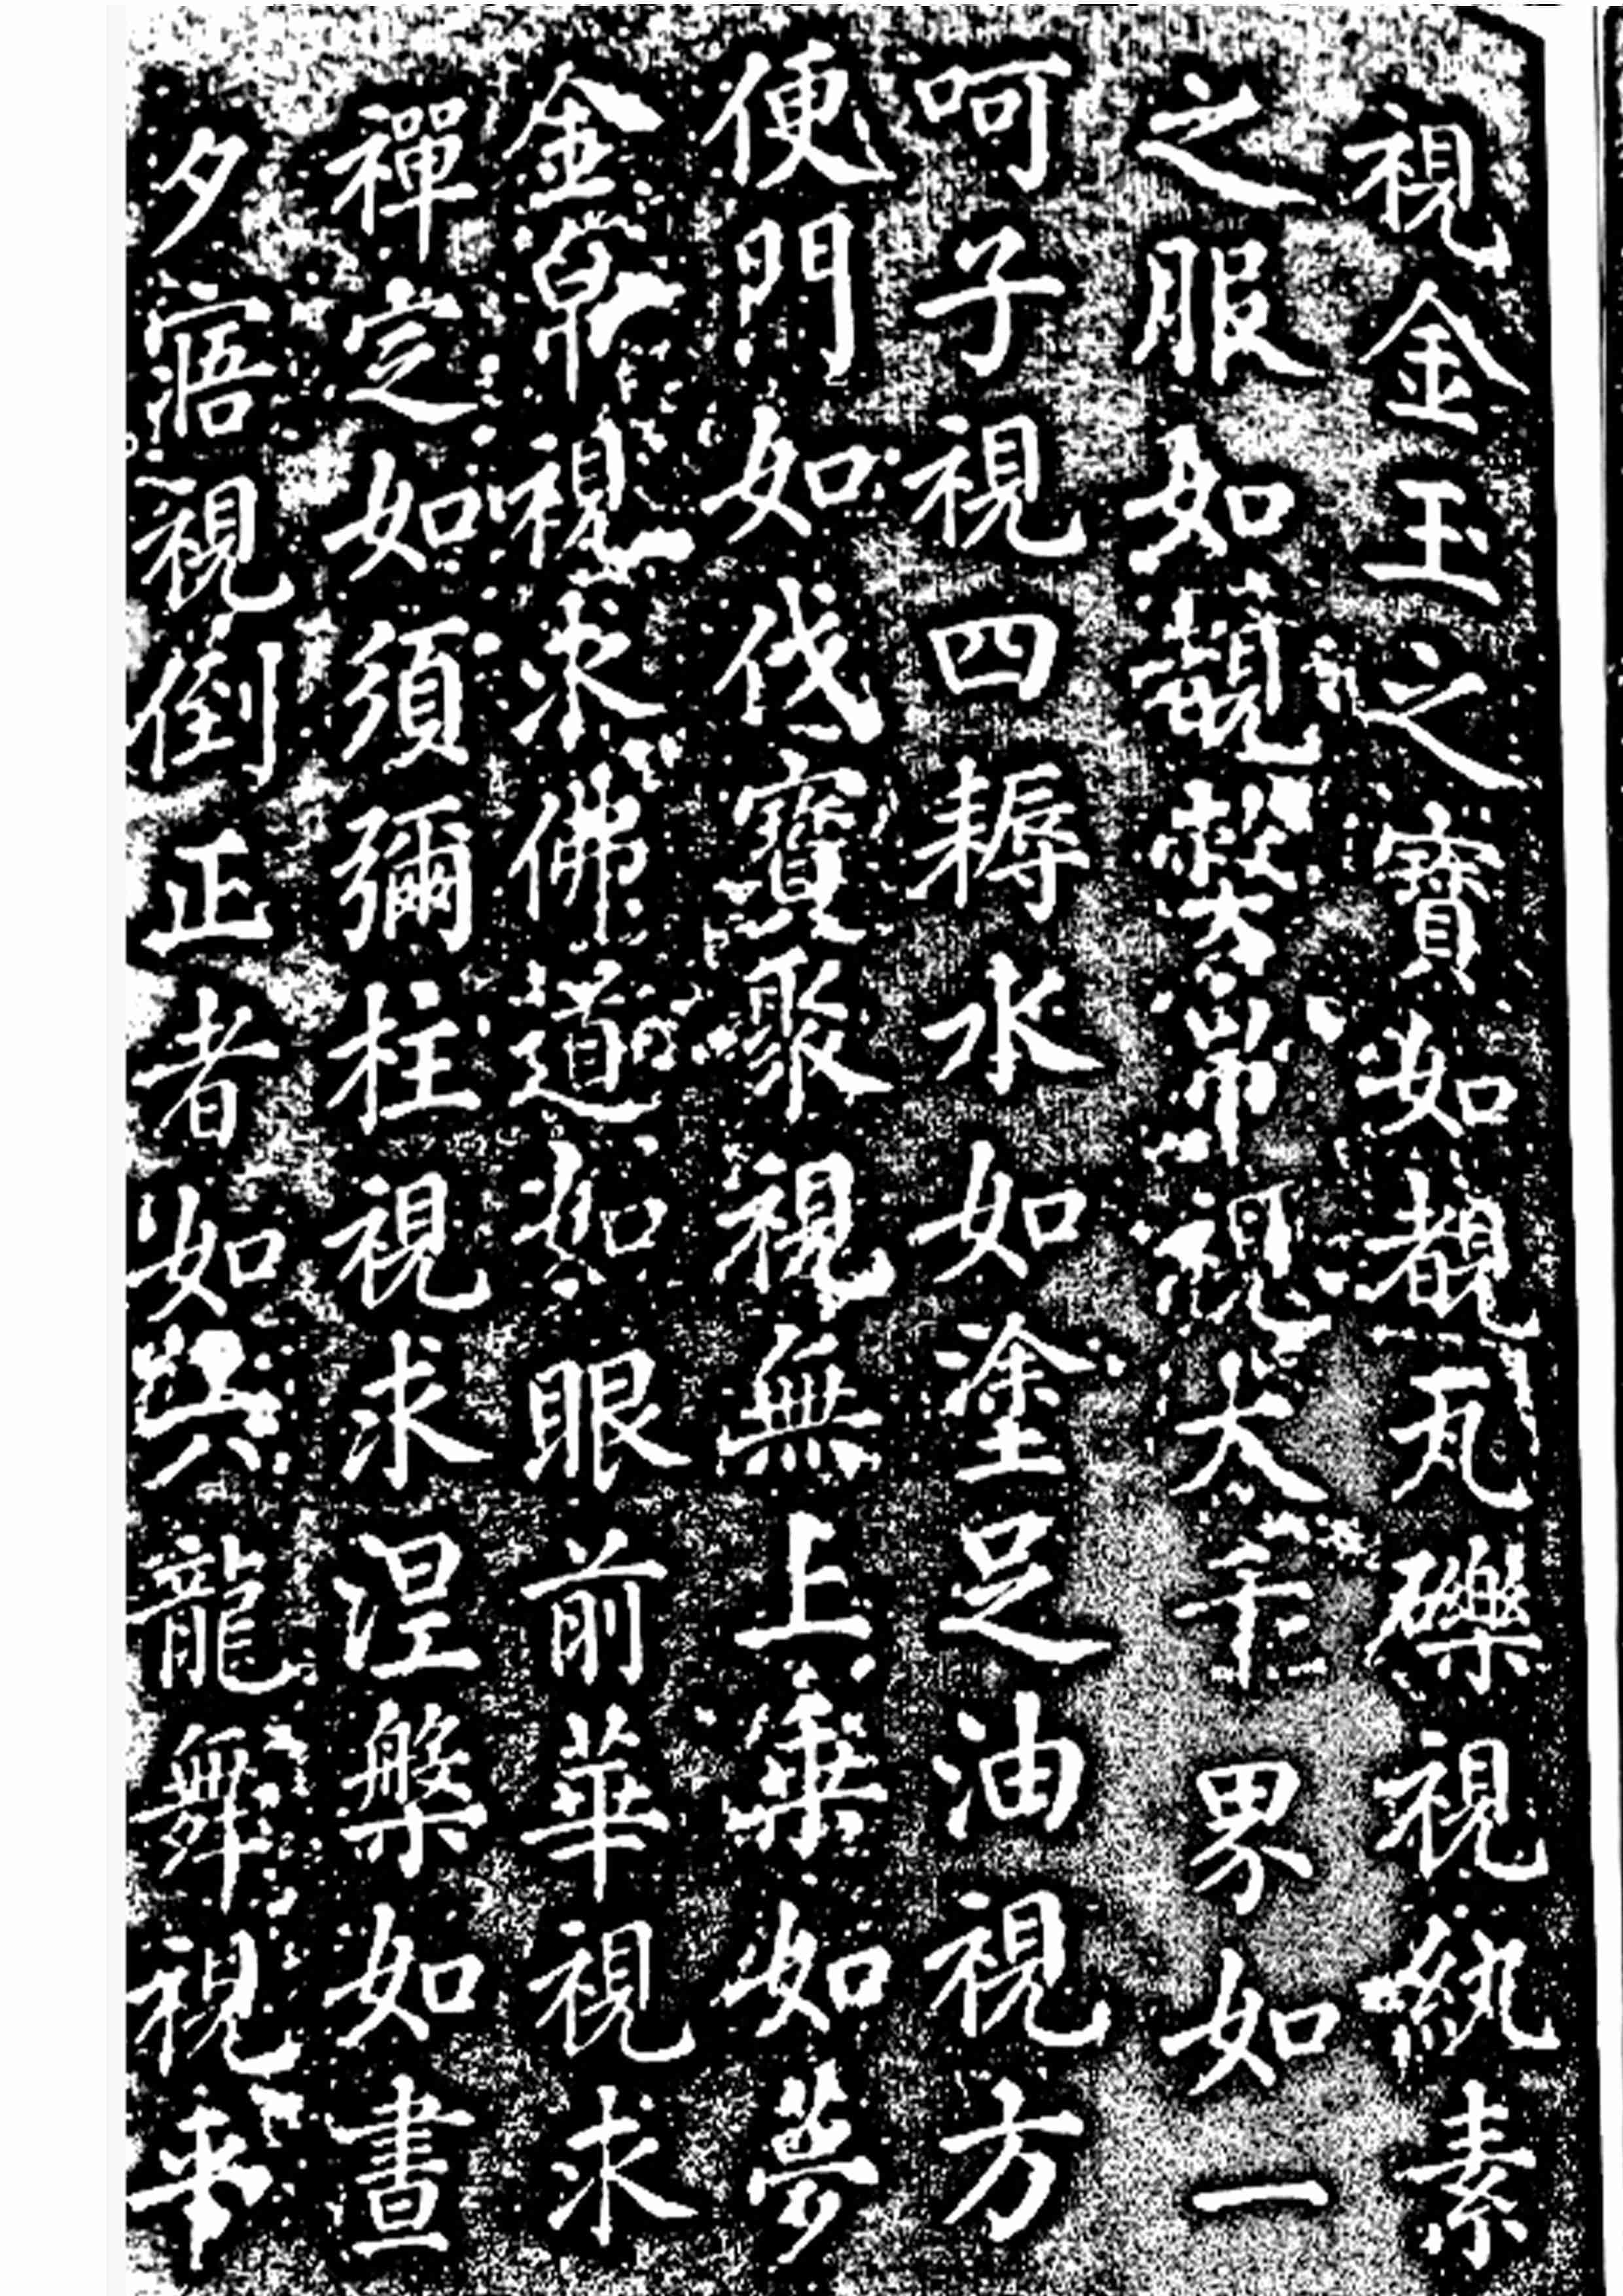 視金玉之寶如覩瓦礫視紈素
之服如覩弊帛視大千界如一
呵子視四耨水如塗足油視方
便門如伐寶聚視無上乘如夢
金帛視求佛道如眼前華視求
禪定如須彌柱視求涅槃如晝
夕寤視倒正者如六龍舞視平